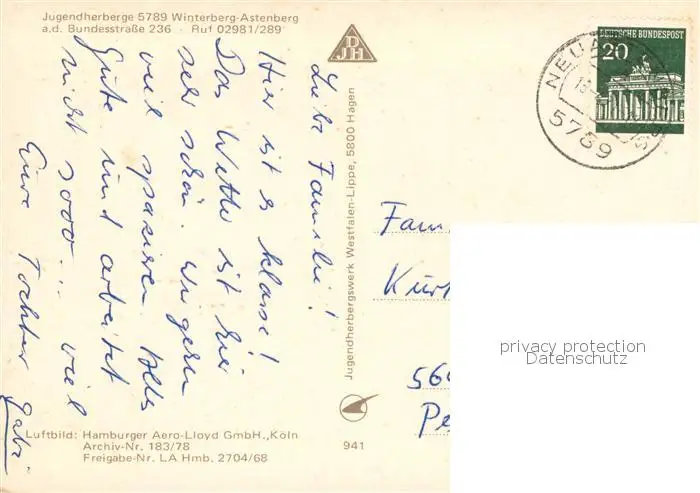 Jugendherberge 5789 Winterberg-Astenberg
a.d. Bundesstraße 236 · Ruf 02981/289
DJH
Liebe Familie!
Hier ist es klasse!
Das Wetter ist hier
sehr schön. Wir gehen
viel spazieren. Alles
Gute und arbeitet
nicht sooo... viel
Eure Tochter Gabi
Luftbild: Hamburger Aero-Lloyd GmbH., Köln
Archiv-Nr. 183/78
Freigabe-Nr. LA Hmb. 2704/68
Jugendherbergswerk Westfalen-Lippe, 5800 Hagen
941
DEUTSCHE BUNDESPOST
20
5789
Fam
Kurt
56
Pe
privacy protection
Datenschutz